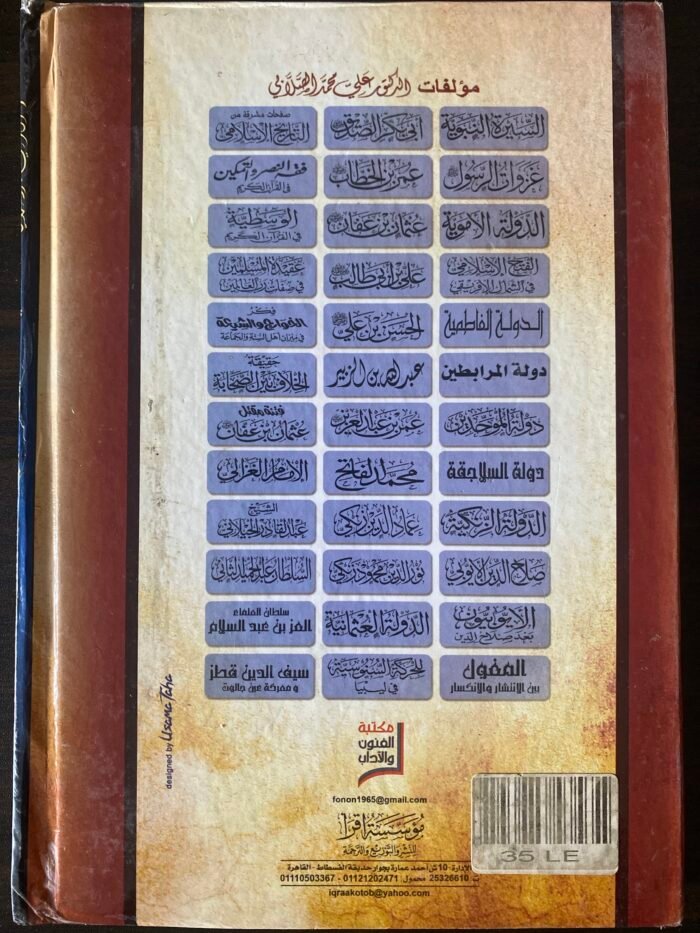 مؤلفات الدكتور علي محمد الصلابي
السيرة النبوية
أبي بكر الصديق
صفحات مشرقة من
التاريخ الإسلامي
غزوات الرسول ﷺ
عمر بن الخطاب
فقه النصر والتمكين
في القرآن الكريم
الدولة الأموية
عثمان بن عفان
الوسطية
في القرآن الكريم
الفتح الإسلامي
في الشمال الإفريقي
علي بن أبي طالب
عقيدة المسلمين
في صفات رب العالمين
الدولة الفاطمية
الحسن بن علي
فكر
الخوارج والشيعة
في ميزان أهل السنة والجماعة
دولة المرابطين
عبد الله بن الزبير
حقيقة
الخلاف بين الصحابة
دولة الموحدين
عمر بن عبد العزيز
فتنة مقتل
عثمان بن عفان
دولة السلاجقة
محمد الفاتح
الإمام الغزالي
الدولة الزنكية
عماد الدين زنكي
الشيخ
عبد القادر الجيلاني
صلاح الدين الأيوبي
نور الدين محمود زنكي
السلطان عبد الحميد الثاني
الأيوبيون
بعد صلاح الدين
الدولة العثمانية
سلطان العلماء
العز بن عبد السلام
المغول
بين الانتشار والانكسار
الحركة السنوسية
في ليبيا
سيف الدين قطز
ومعركة عين جالوت
designed by Usama Taha
مكتبة
الفنون
والآداب
fonon1965@gmail.com
مؤسسة اقرأ
للنشر والتوزيع والترجمة
الإدارة: 10 ش أحمد عمارة بجوار حديقة الفسطاط - القاهرة
ت 25326610 محمول: 01121202471 - 01110503367
iqraakotob@yahoo.com
35 LE